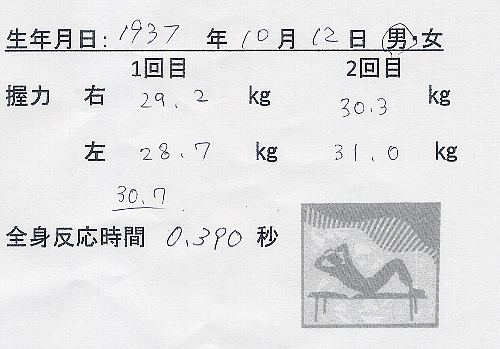 生年月日: 1937 年 10 月 12 日 男・女
1回目 2回目
握力 右 29.2 kg 30.3 kg
左 28.7 kg 31.0 kg
30.7
全身反応時間 0.390 秒